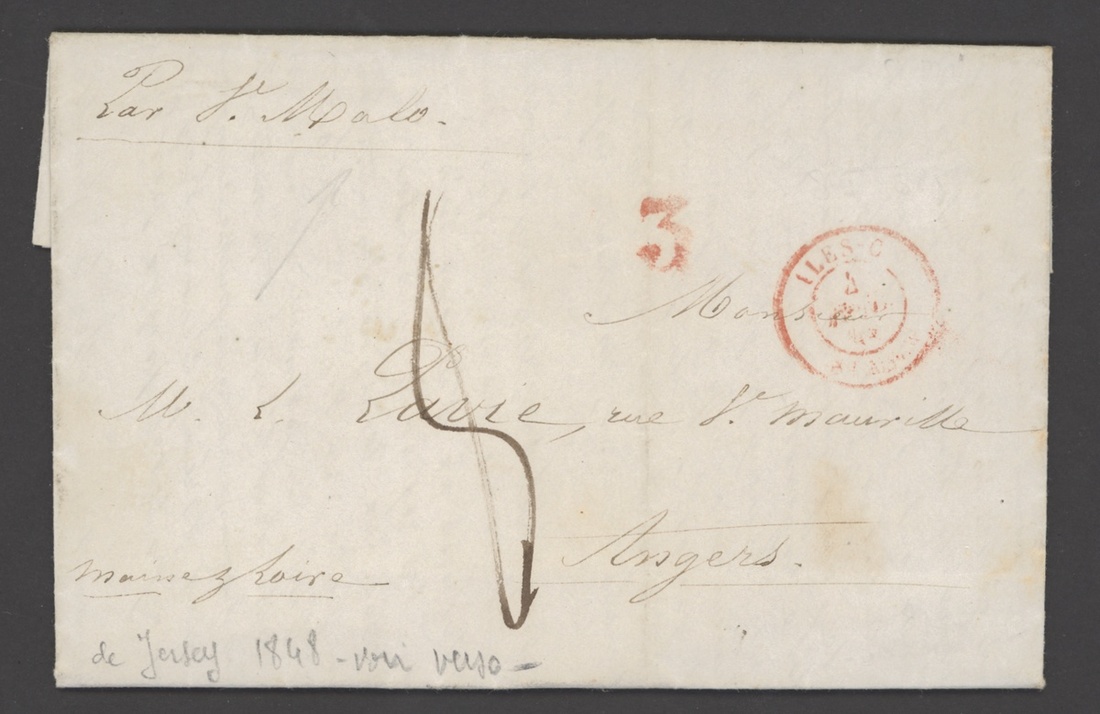 Par St. Malo.
3
ILES-C
4
Monsieur
M. L. Pavie, rue St. Maurille
Angers.
Maine & Loire
de Jersey 1848 - voir verso -